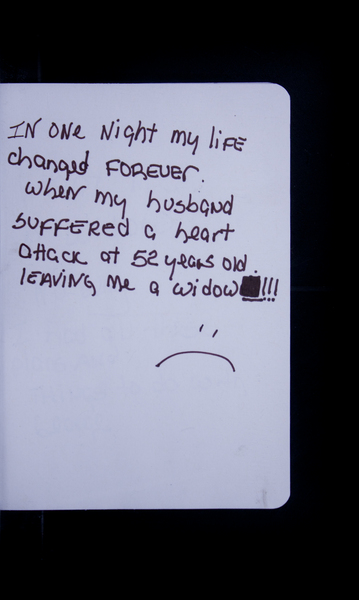 IN ONE Night my liFE
changed FOREVER.
when my husband
SUFFERED a heart
attack at 52 years old.
lEAViNg Me a widow!!!